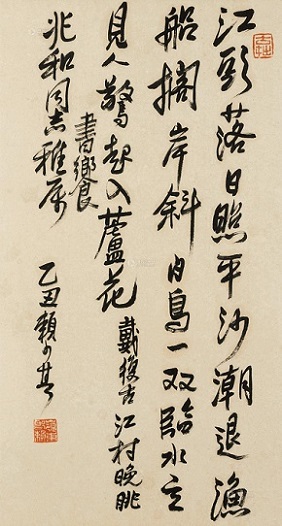 江頭落日照平沙潮退漁
船擱岸斜白鳥一双臨水立
見人驚起入蘆花 戴復古江村晚眺
書饗
兆和同志雅属 乙丑賴少其